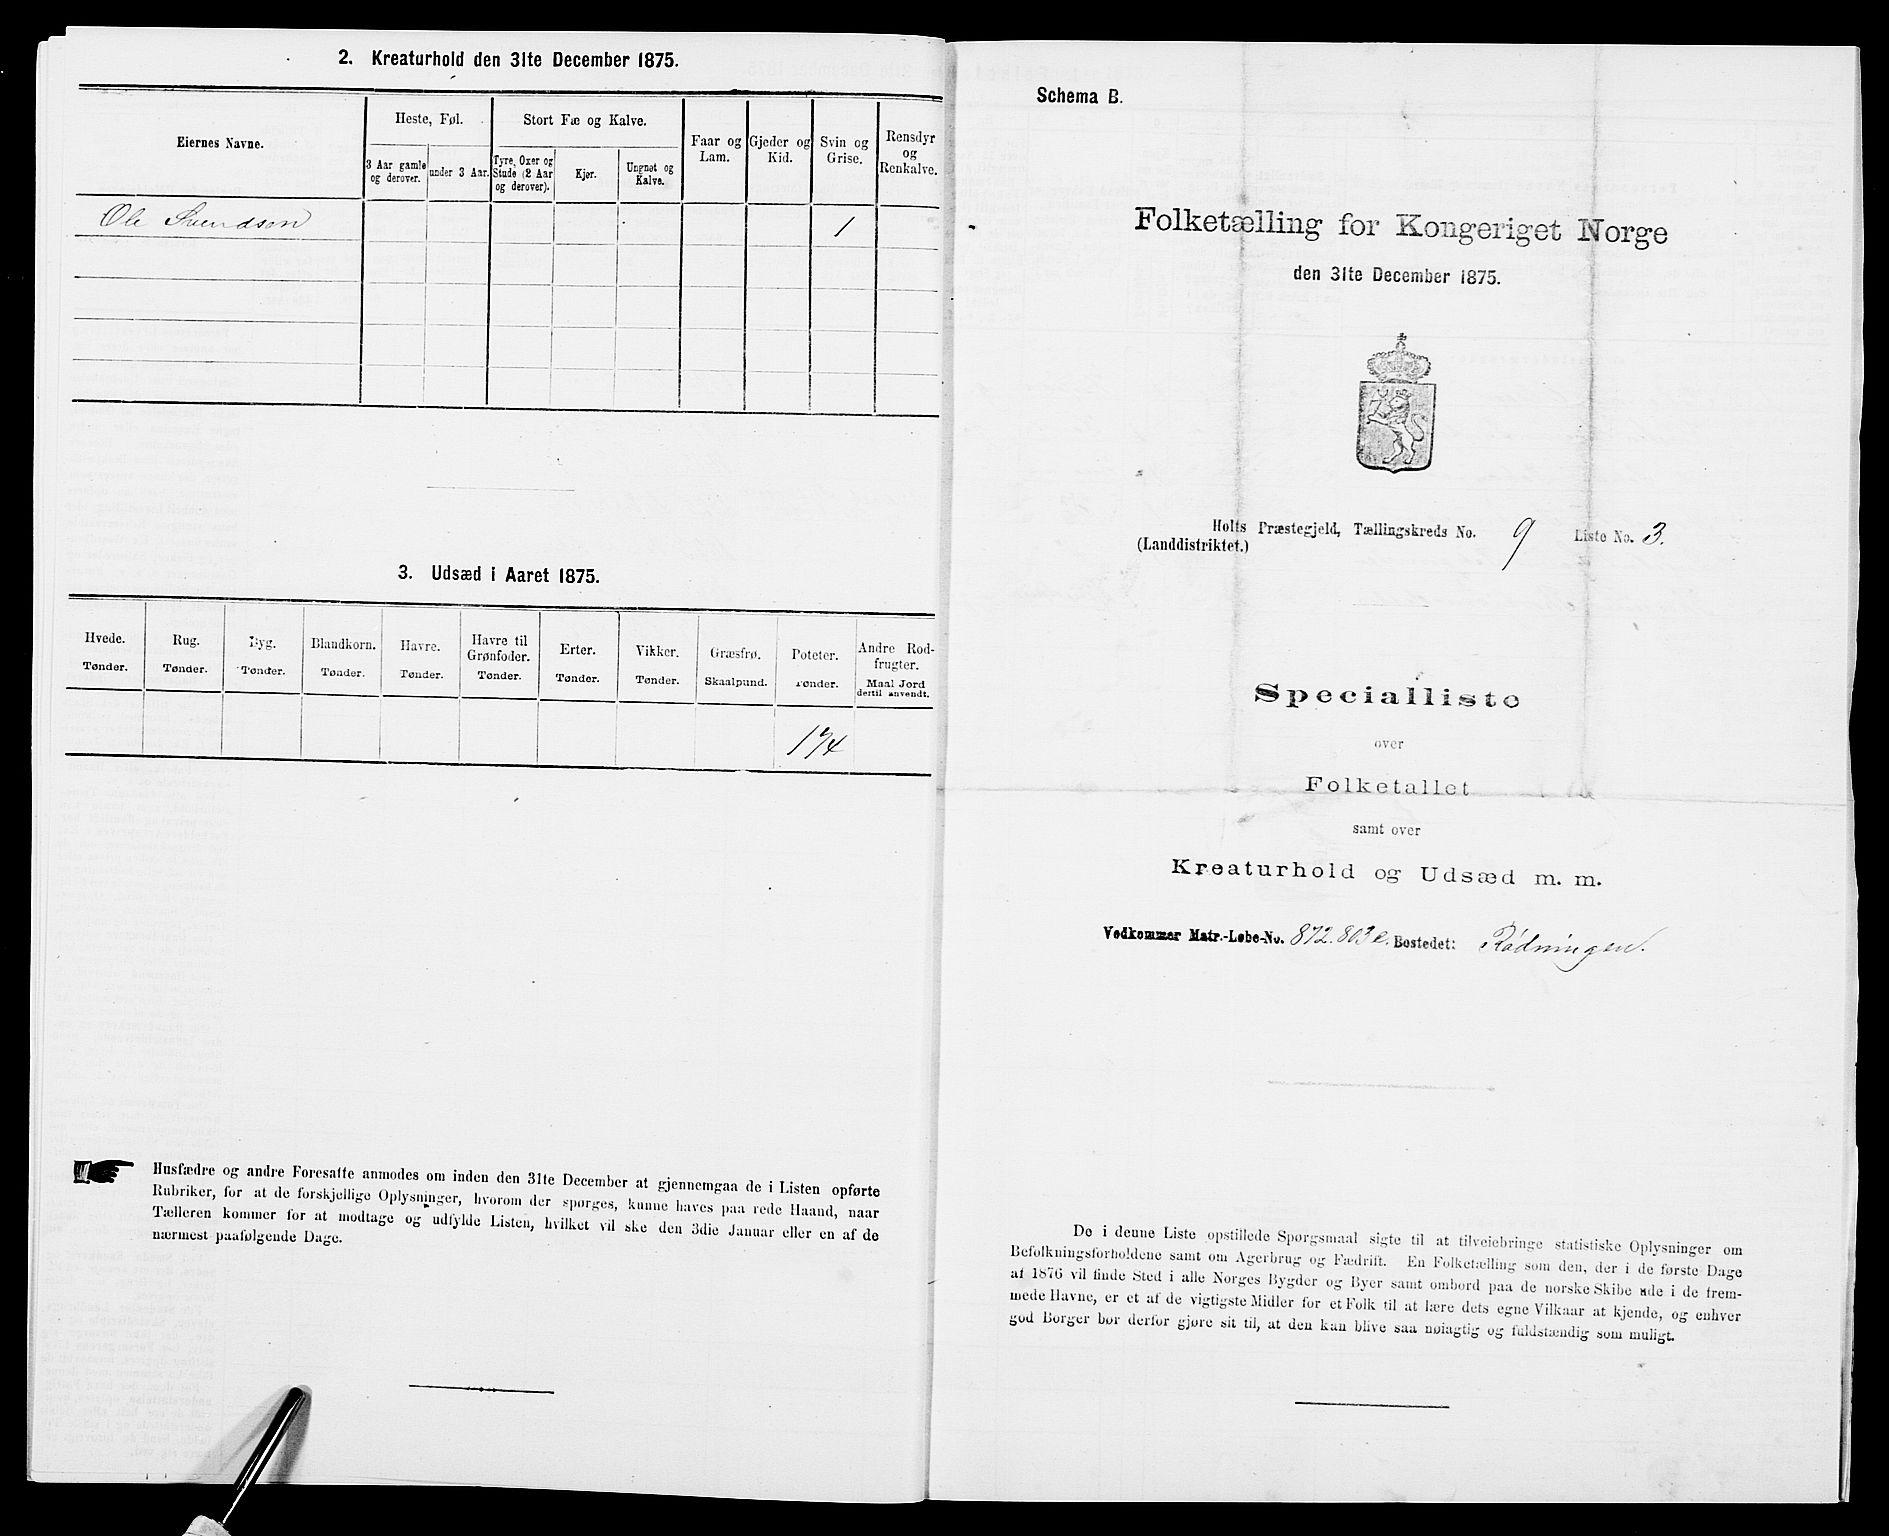 2. Kreaturhold den 31te December 1875.
Eiernes Navne.
Heste, Føl.
Stort Fæ og Kalve.
Faar og
Lam.
Gjeder og
Kid.
Svin og
Grise.
Rensdyr
og
Renkalve.
3 Aar gamle
og derover.
under 3 Aar.
Tyre, Oxer og
Stude (2 Aar
og derover).
Kjør.
Ungnøt og
Kalve.
Ole Svendsen 1
3. Udsæd i Aaret 1875.
Hvede.
Tønder.
Rug.
Tønder.
Byg.
Tønder.
Blandkorn.
Tønder.
Havre.
Tønder.
Havre til
Grønfoder.
Tønder.
Erter.
Tønder.
Vikker.
Tønder.
Græsfrø.
Skaalpund.
Poteter.
Tønder.
Andre Rod-
frugter.
Maal Jord
dertil anvendt.
Husfædre og andre Foresatte anmodes om inden den 31te December at gjennemgaa de i Listen opførte
Rubriker, for at de forskjellige Oplysninger, hvorom der spørges, kunne haves paa rede Haand, naar
Tælleren kommer for at modtage og udfylde Listen, hvilket vil ske den 3die Januar eller en af de
nærmest paafølgende Dage.
Schema B.
Folketælling for Kongeriget Norge
den 31te December 1875.
Holts Præstegjeld, Tællingskreds No. 9 Liste No. 3.
(Landdistriktet.)
Specialliste
over
Folketallet
samt over
Kreaturhold og Udsæd m. m.
Vedkommer Matr.-Løbe-No. 872.803e. Bostedet: Rødningen.
De i denne Liste opstillede Spørgsmaal sigte til at tilveiebringe statistiske Oplysninger om
Befolkningsforholdene samt om Agerbrug og Fædrift. En Folketælling som den, der i de første Dage
af 1876 vil finde Sted i alle Norges Bygder og Byer samt ombord paa de norske Skibe ude i de frem-
mede Havne, er et af de vigtigste Midler for et Folk til at lære dets egne Vilkaar at kjende, og enhver
god Borger bør derfor gjøre sit til, at den kan blive saa nøiagtig og fuldstændig som muligt.